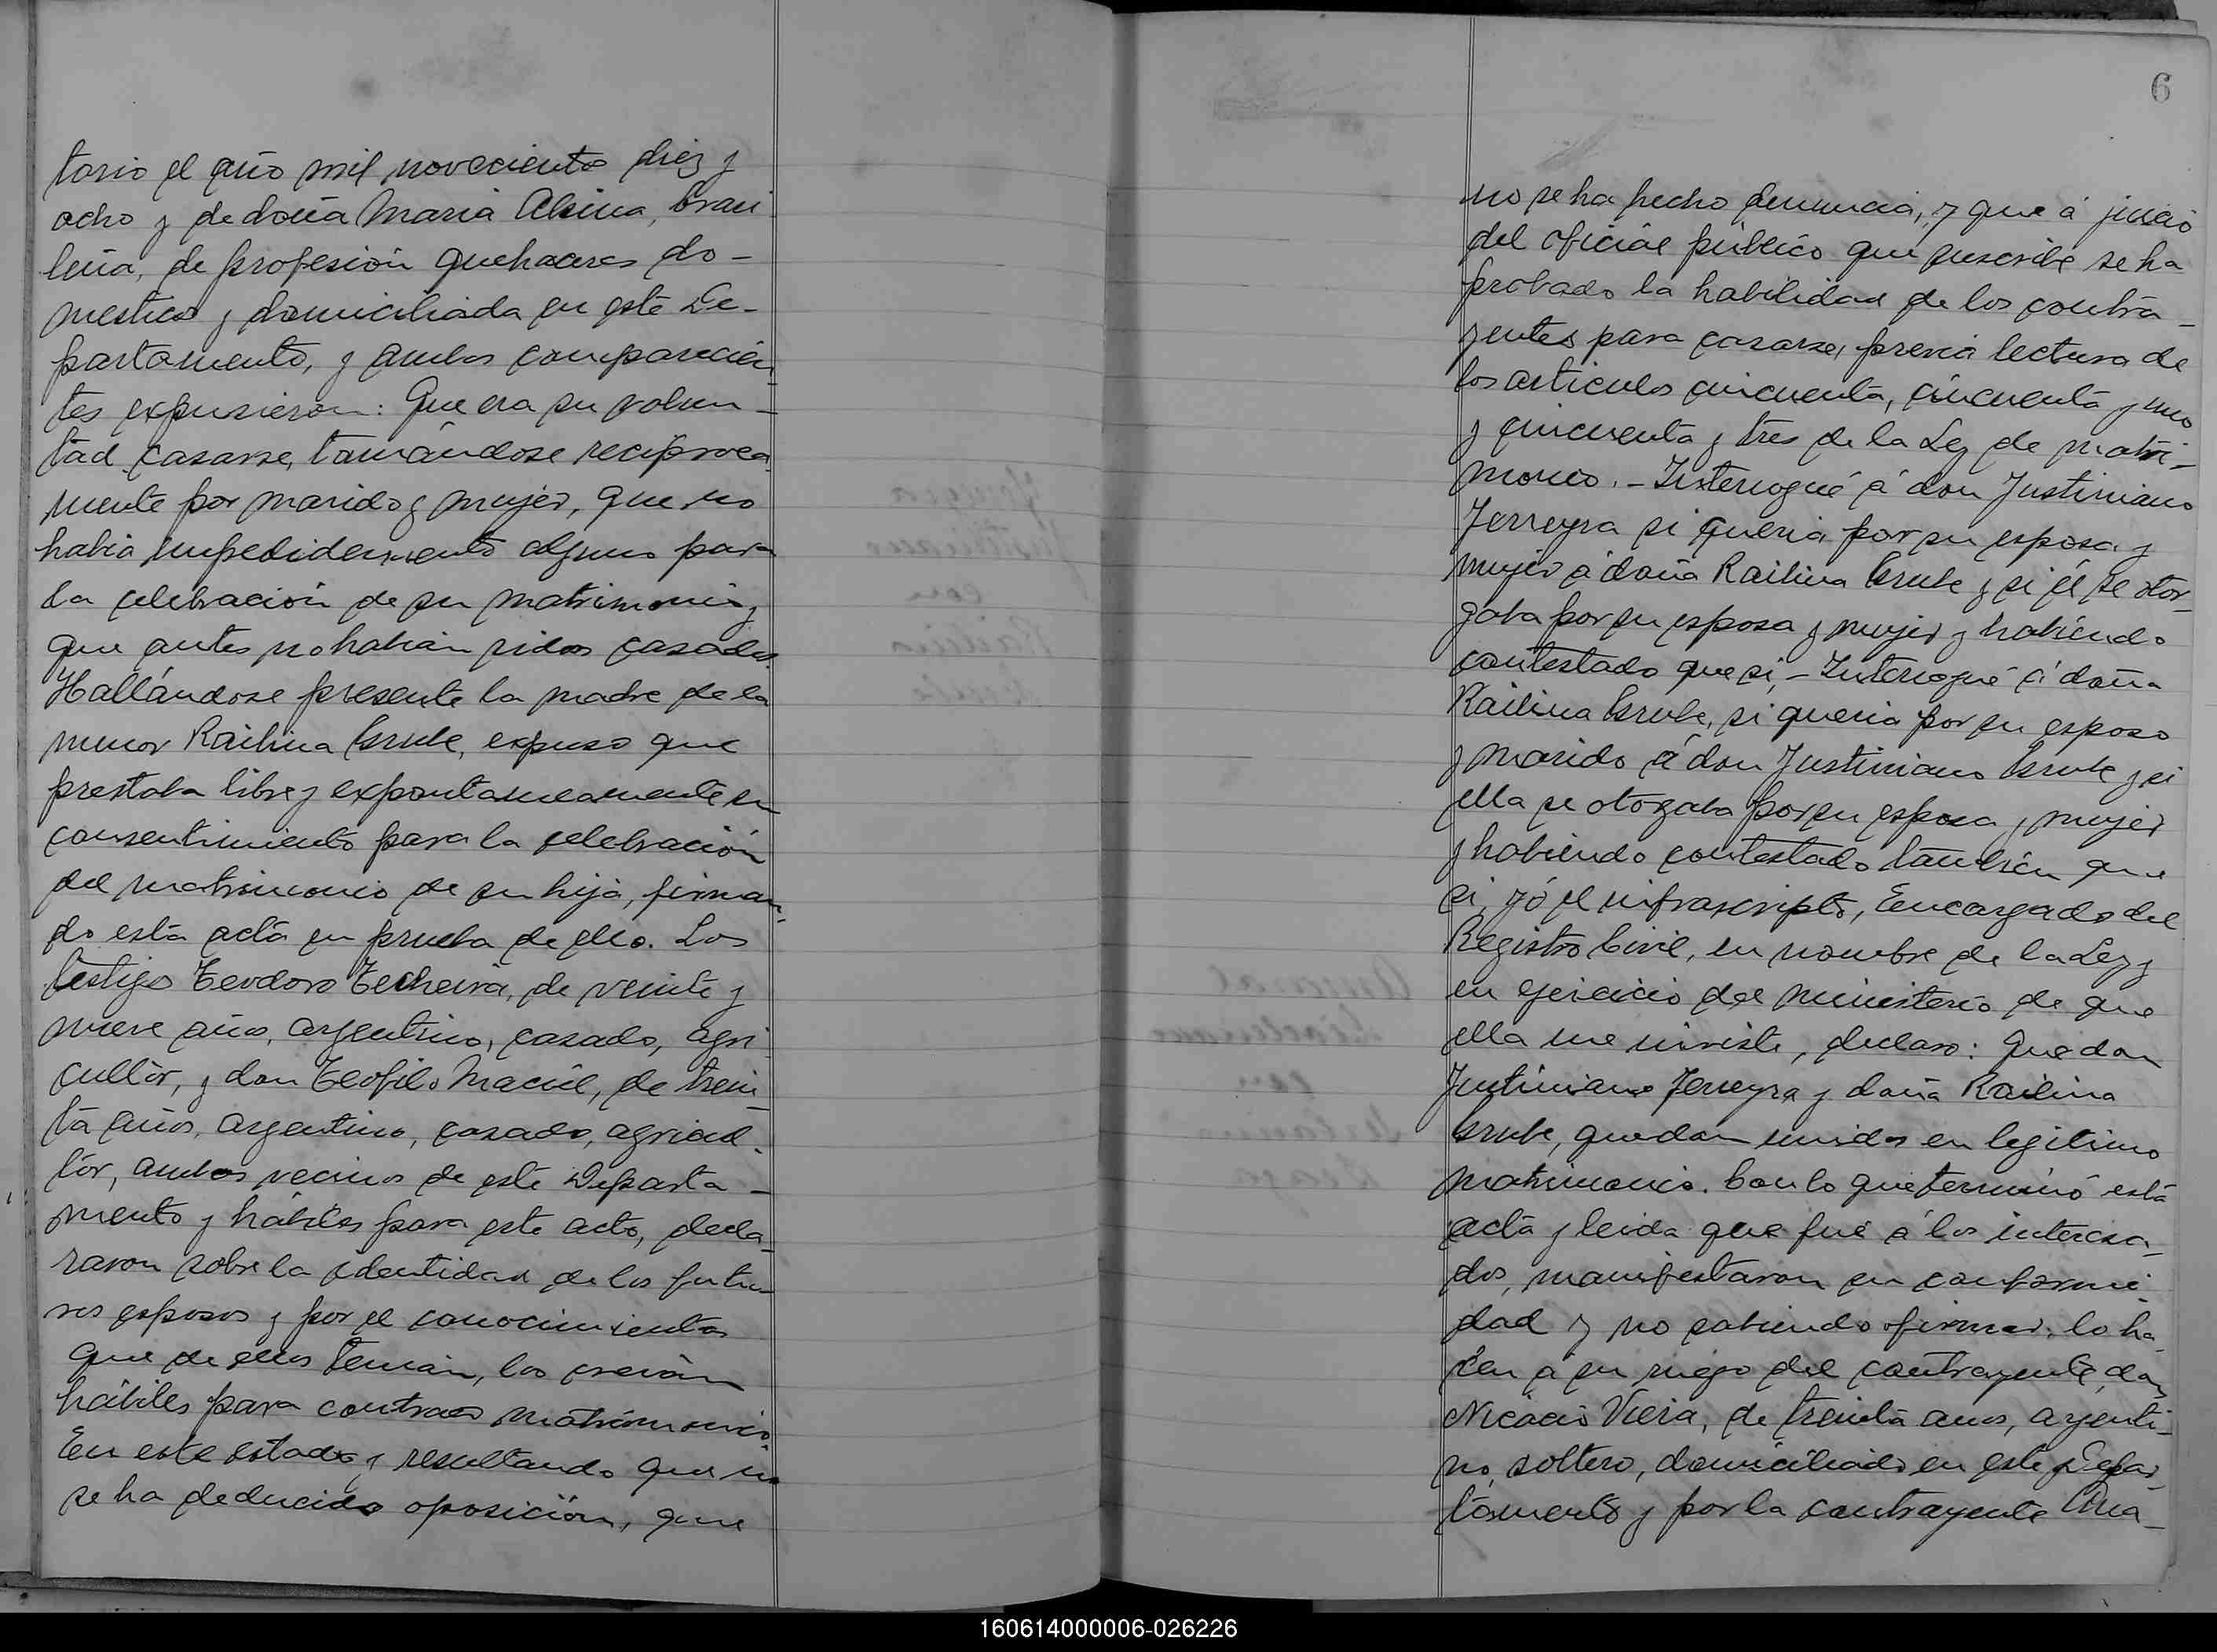 torio el año mil novecientos diez y
ocho y de doña Maria Alsina, brasi
leña, de profesión quehaceres do-
mesticos y domiciliada en este De-
partamento, y ambos comparecien-
tes expusieron: Que era su volun-
tad casarse, tomándose reciproca
mente por marido y mujer, que no
habia impedidemento alguno para
la celebración de su matrimonio y
que antes no habian sidos casados.
Hallándose presente la madre de la
menor Railina Grube, expuso que
prestaba libre y expontaneamente su
consentimiento para la celebración
del matrimonio de su hija, firman-
do esta acta en prueba de ello. Los
testigos Teodoro Techeira, de veinte y
nueve años, argentino, casado, agri
cultor, y don Teofilo Maciel, de trein
ta años, argentino, casado, agricul-
tor, ambos vecinos de este Departa-
mento y hábiles para este acto, decla-
raron sobre la identidad de los futu-
ros esposos y por el conocimientos
que de ellos tenian, los creían
hábiles para contraer matrimonio.
En este estado y resultando que no
se ha deducido oposición, que
6
no se ha hecho denuncia, y que á juicio
del oficial público que suscribe se ha
probado la habilidad de los contra-
yentes para casarse, previa lectura de
los articulos cincuenta, cincuenta y uno
y cincuenta y tres de la Ley de matri-
monio.- Interrogué á don Justiniano
Ferreyra si queria por su esposa y
mujer á doña Railina Grube y si él se otor-
gaba por su esposa y mujer y habiendo
contestado que si,- Interrogué á doña
Railina Grube, si queria por su esposo
y marido á don Justiniano Grube y si
ella se otorgaba por su esposa y mujer
y habiendo contestado también que
si, yó el infrascripto, Encargado del
Registro Civil, en nombre de la Ley y
en ejercicio del ministerio de que
ella me inviste, declaro: Que don
Justiniano Ferreyra y doña Railina
Grube, quedan unidos en legitimo
matrimonio. Con lo que terminó esta
acta y leida que fué á los interesa-
dos, manifestaron su conformi-
dad y no sabiendo firmar, lo ha-
cen a su ruego del contrayente, don
Nicacio Vieira, de treinta anos, argenti-
no, soltero, domiciliado en este Depar
tamento y por la contrayente Ana-
160614000006-026226